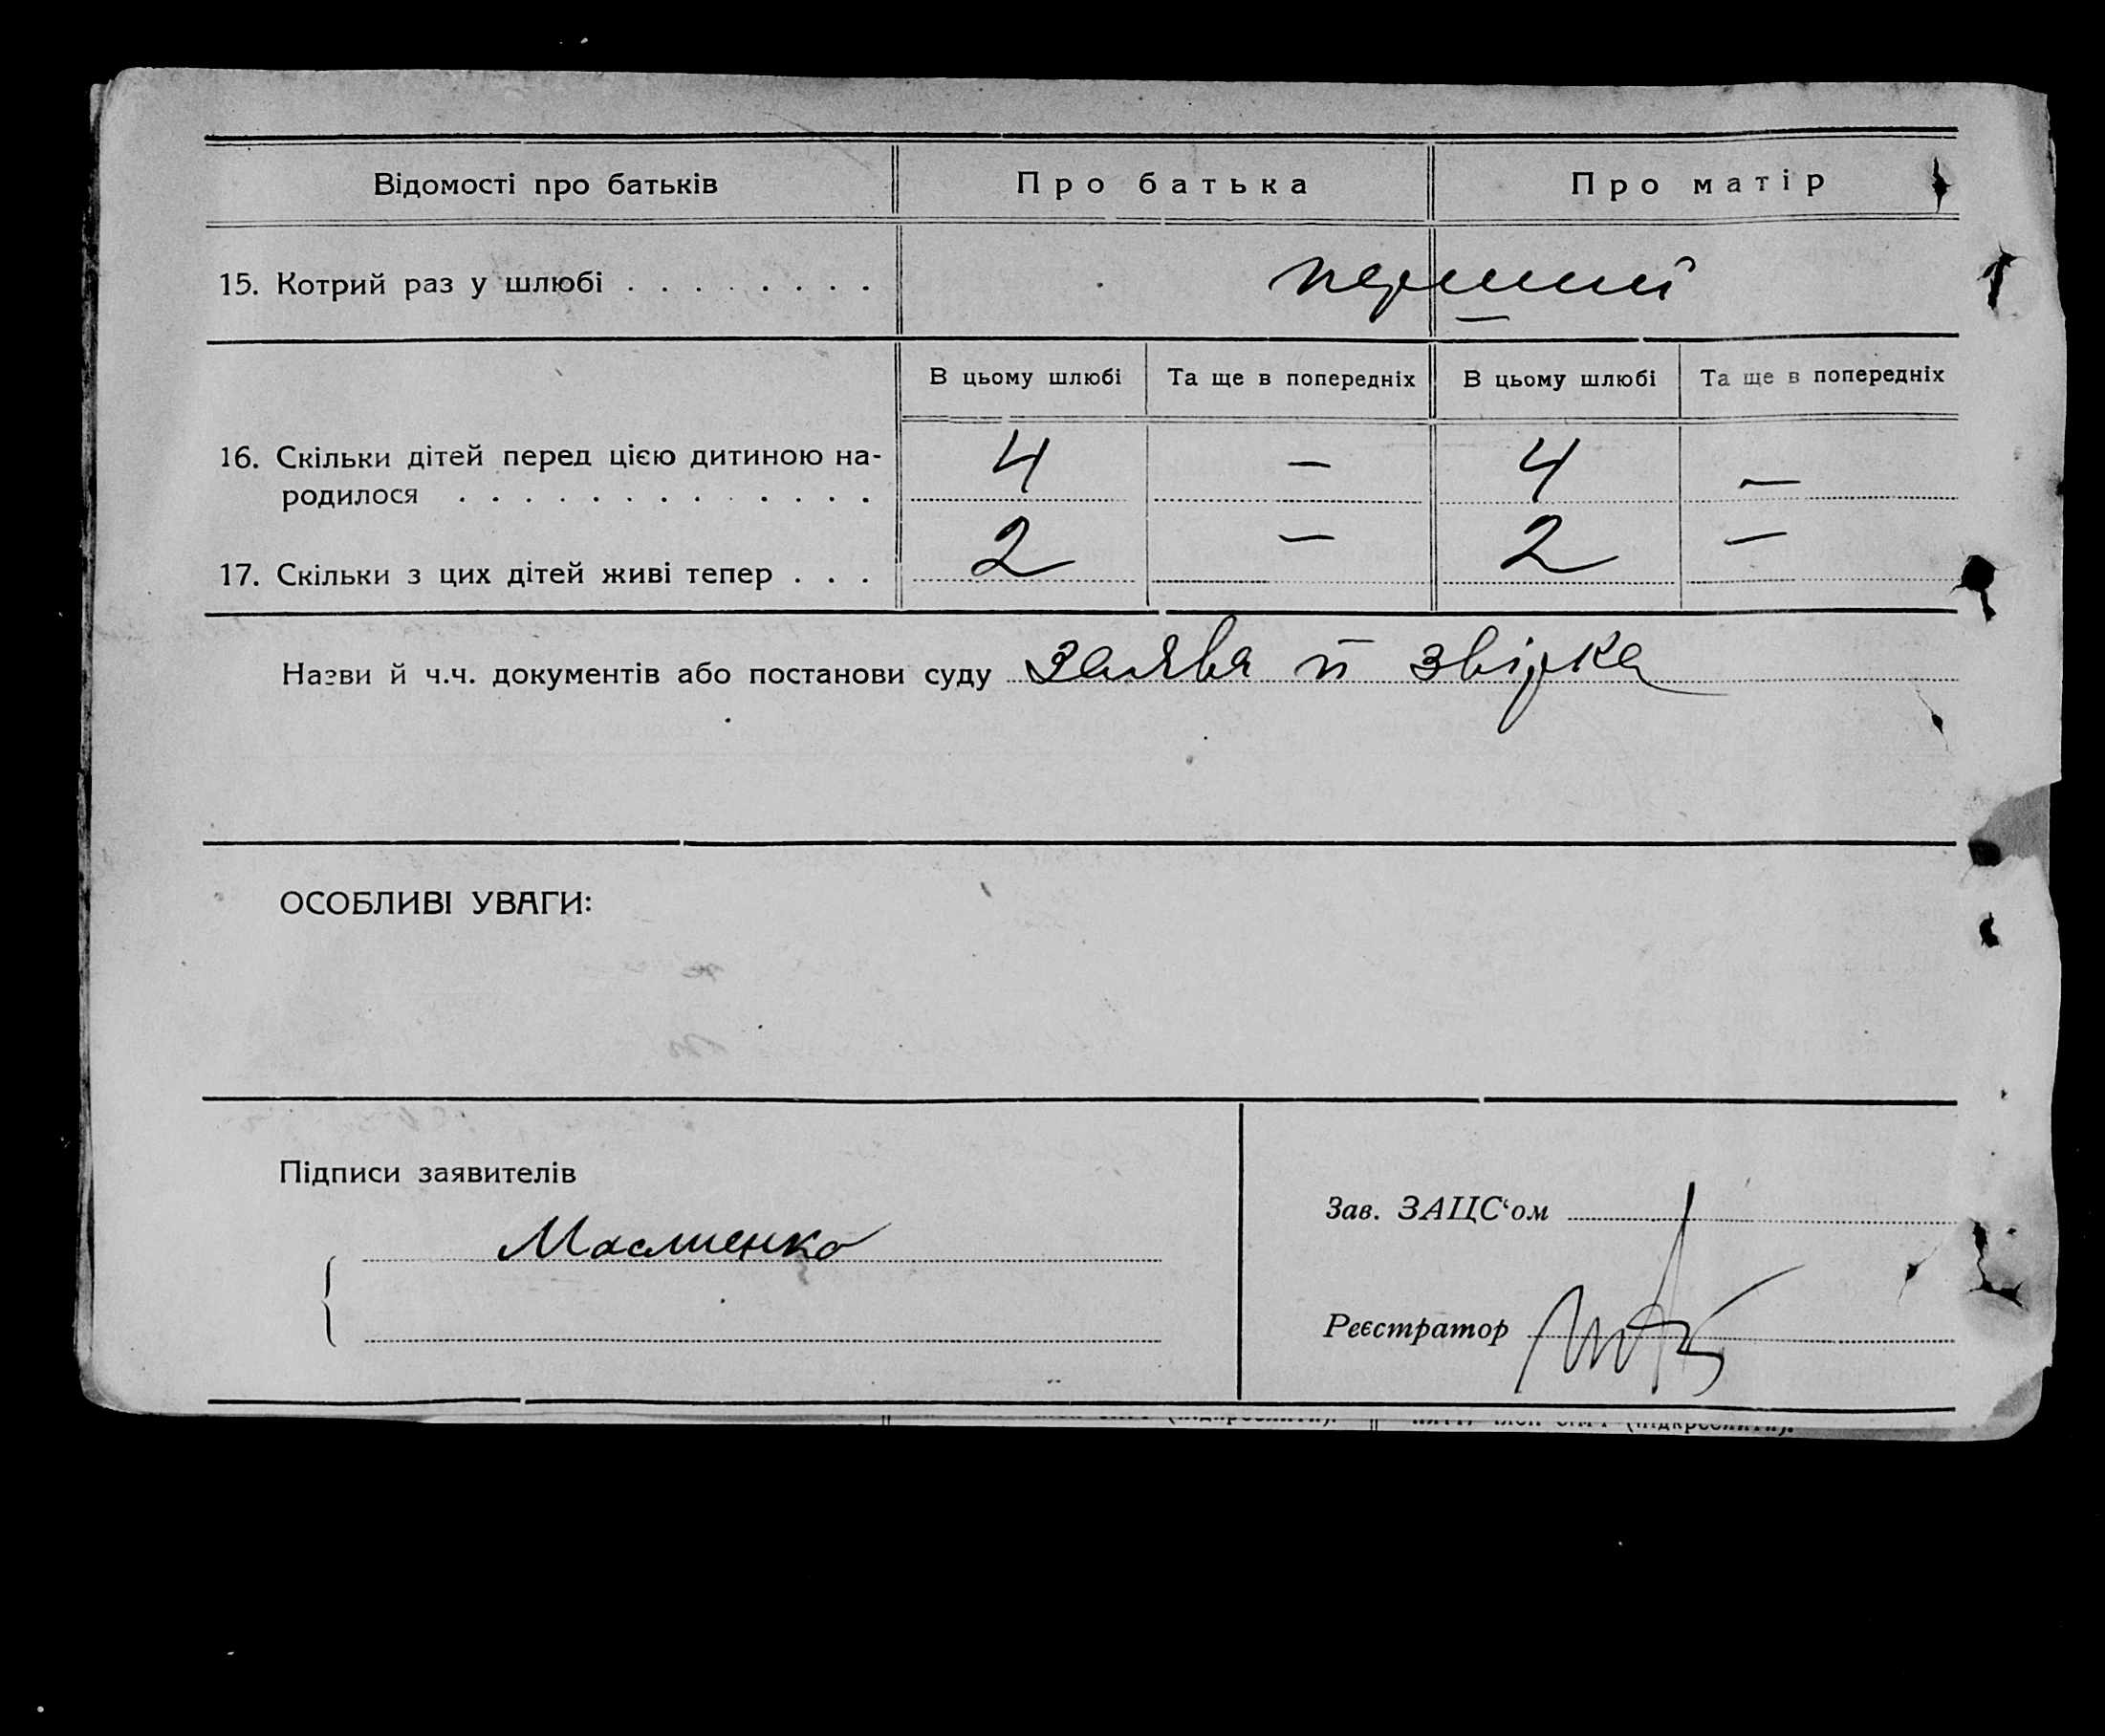 Відомості про батьків Про батька Про матір
15. Котрий раз у шлюбі . . . . . . . . перший
В цьому шлюбі Та ще в попередніх В цьому шлюбі Та ще в попередніх
16. Скільки дітей перед цією дитиною на-
родилося . . . . . . . . . . . . . 4 — 4 —
17. Скільки з цих дітей живі тепер . . . 2 — 2 —
Назви й ч.ч. документів або постанови суду заява й звірка
ОСОБЛИВІ УВАГИ:
Підписи заявителів
Зав. ЗАЦС‘ом
Реєстратор
(підкреслити). (підкреслити).